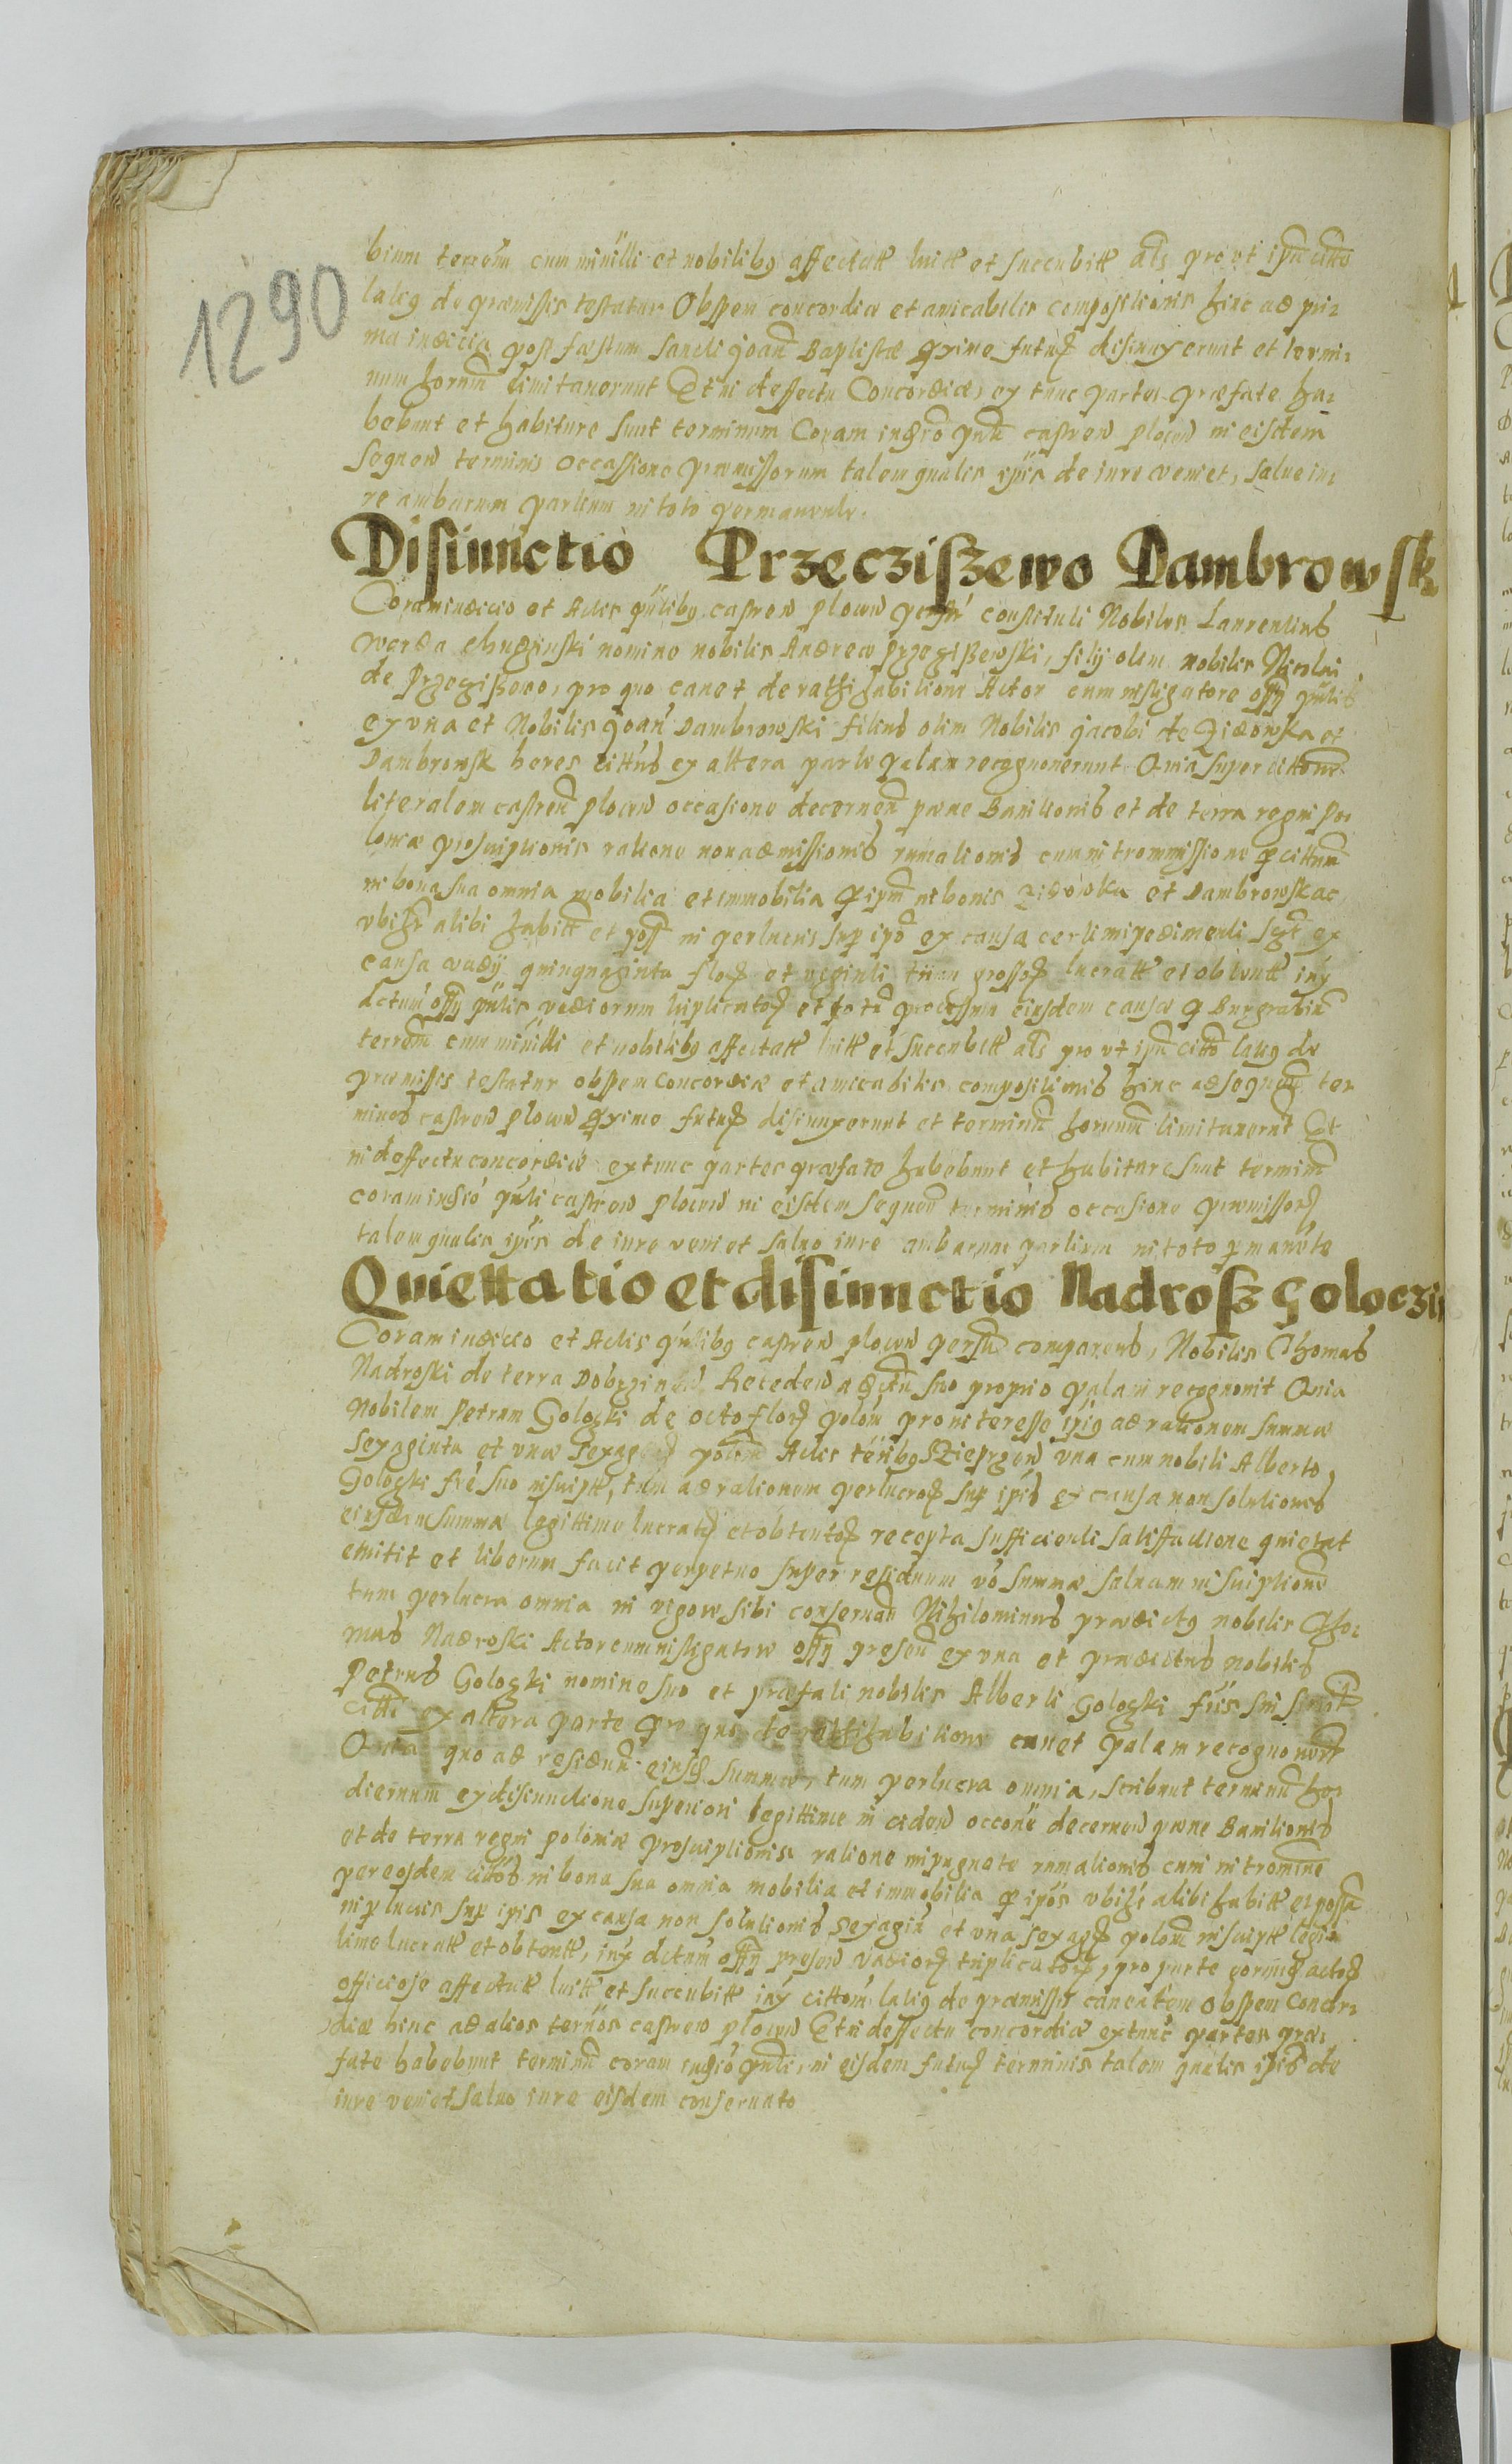 1290
bium terrenū cum minilli et nobilibꝫ affectatt luitt et succubitt als pro ut ipā cittō
latiꝫ de præmissis testatur Obspem concordiæ et amicabilis compositionis hinc ad pri¬
ma iudicia post festum sancti Joan̄ Baptistæ proxime futuꝝ disiunxerunt et termi¬
num horum limitauerunt Et in deffectu Concordiæ, ex tunc partes præfate ha¬
bebunt et habiture sunt terminum Coram iudicio pnti castren plocen in eisdem
sequen terminis occassione præmissorum talem qualis ipsis de iure veniet, saluo iu¬
re ambarum partium in toto permanente.
Disiunctio Przecziszewo Dambrowsk
Coram iudicio et Actis pn̄tibꝫ castren plocen persr̄ constituti Nobiles Laurentius
warda nomine nobilis Andreæ Przeciszewski, filij olim nobilis Nicolai
de Przeciszewo, pro quo cauet de rathihabitione Actor cum instigatore offy pn̄tis
ex vna et Nobilis Joan̄ Dambrowski filius olim Nobilis Jacobi de Zidowka et
Dambrowsk heres cittus ex altera parte palam recognouerunt Quia super cittōne
literalem castren̄ plocen occasione decernen̄ pœne Banitionis et de terra regni Po¬
loniæ proscriptionis ratione non admissionis rumationis cum intromissione per cittum
in bona sua omnia mobilia et immobilia per ipm̄ in bonis Zidowka et Dambrowsk ac
vbiꝫ alibi habitt et poss in perlucris sup ipō ex causa certi impedimenti sct̄ ex
causa vadÿ quinquaginta floꝝ et viginti trium grossoꝝ lucratt et obtentt inꝫ
dictum offy pn̄tis vadiorum triplicatoꝝ et totū processum eiusdem causæ per Burgrabiū
terrenū cum minilli et nobilibꝫ affectatt luitt et succubitt als pro vt ipā cittō latiꝫ de
præmissis testatur obspem concordiæ et amicabilis compositionis hinc ad sequen̄ ter
minos castren plocen proxime futuꝝ disiunxerunt et terminū horum limitauerūt Et
in deffectu concordiæ extunc partes præfate habebunt et habiture sunt terminū
coram iudicio pn̄ti castren plocen in eisdem sequen terminis occasione præmissoꝝ
talem qualis ipsis de iure veniet saluo iure ambarum partium in toto permanēte
Quiettatio et disiunctio Nadrosz Goloczi
Coram iudicio et Actis pn̄tibꝫ castren plocen persn̄ comparens, Nobilis Thomas
Nadroski de terra Dobrzinen Recedens a dictū suo proprio palam recognouit Quia
Nobilem Petrum Golocki de octo floꝝ polon̄ pro interesse ipsiꝫ ad rationem summæ
sexaginta et vnæ sexagꝝ polon̄ Actis terribꝫ Szieprzen vna cum nobili Alberto
Golocki fr̄e suo inscriptt, tum ad rationem perlucroꝝ sup ipsis ex causa non solutionis
eiusdem summæ legittime lucratꝝ et obtentoꝝ recepta sufficienti satisfactione quietat
emitit et liberum facit perpetuo super residuum vō summæ saluam inscriptionē
tum perlucra omnia in vigore sibi conseruan̄ Nihilominus prædictꝫ nobilis Tho¬
mas Nadroski Actor cum instigatore offy presen̄ ex vna et prædictus nobilis
Petrus Golocki nomine suo et præfati nobilis Alberti Golocki fr̄is sui
citti ex altera parte pro quo de rathihabitione cauet palam recognouert
Quia quo ad residuū eiusꝝ summæ, tum perlucra omnia, scribunt terminū ho¬
diernum ex disiunctione superiori legittime in ciden occōne decernen pœne Banitionis
et de terra regni poloniæ proscriptionis, ratione inpugnate rumationis cum intromine
per eosdem cittos in bona sua omnia mobilia et immobilia per ipsos vbiꝫ alibi habitt et possn̄
in p lucris sup ipsis ex causa non solutionis sexagin̄ et vna sexagꝝ polon̄ inscriptt legit¬
time lucratt et obtentt, inꝫ dictum offy presen vadioꝝ triplicatoꝝ, pro parte actoꝝ
officiose affectatt luitt et succubitt inꝫ cittom̄ latiꝫ de præmissis canentem Obspem Concor¬
diæ hinc ad alios ternōs castren plocen Et in deffectu concordiæ extunc partes præ¬
fate habebunt terminū coram iudicio pn̄ti, in eisdem futuꝝ terminis talem qualis ipsis de
iure veniet saluo iure eisdem conseruato